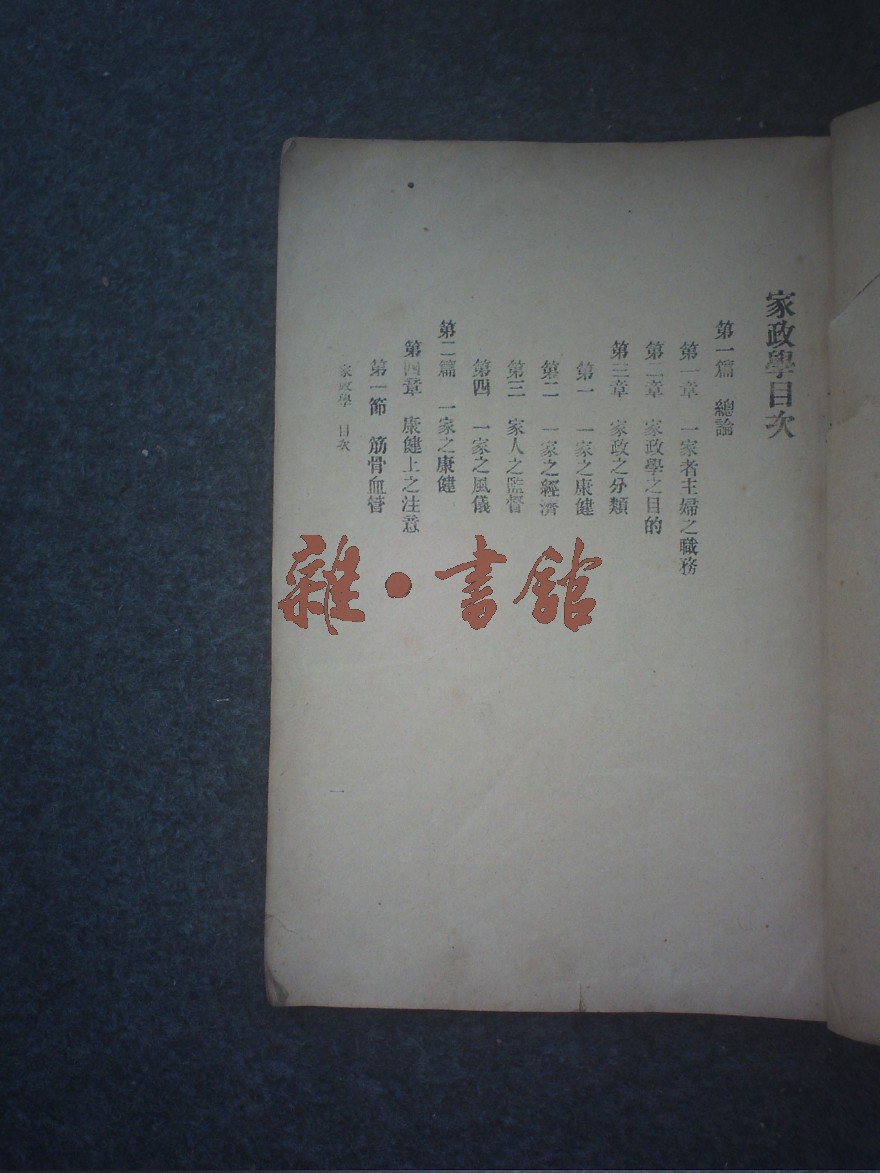 家政學目次
第一篇　總論
第一章　一家者主婦之職務
第二章　家政學之目的
第三章　家政之分類
第一　一家之康健
第二　一家之經濟
第三　家人之監督
第四　一家之風儀
第二篇　一家之康健
第四章　康健上之注意
第一節　筋骨血管
家政學　目次
一
雜·書館